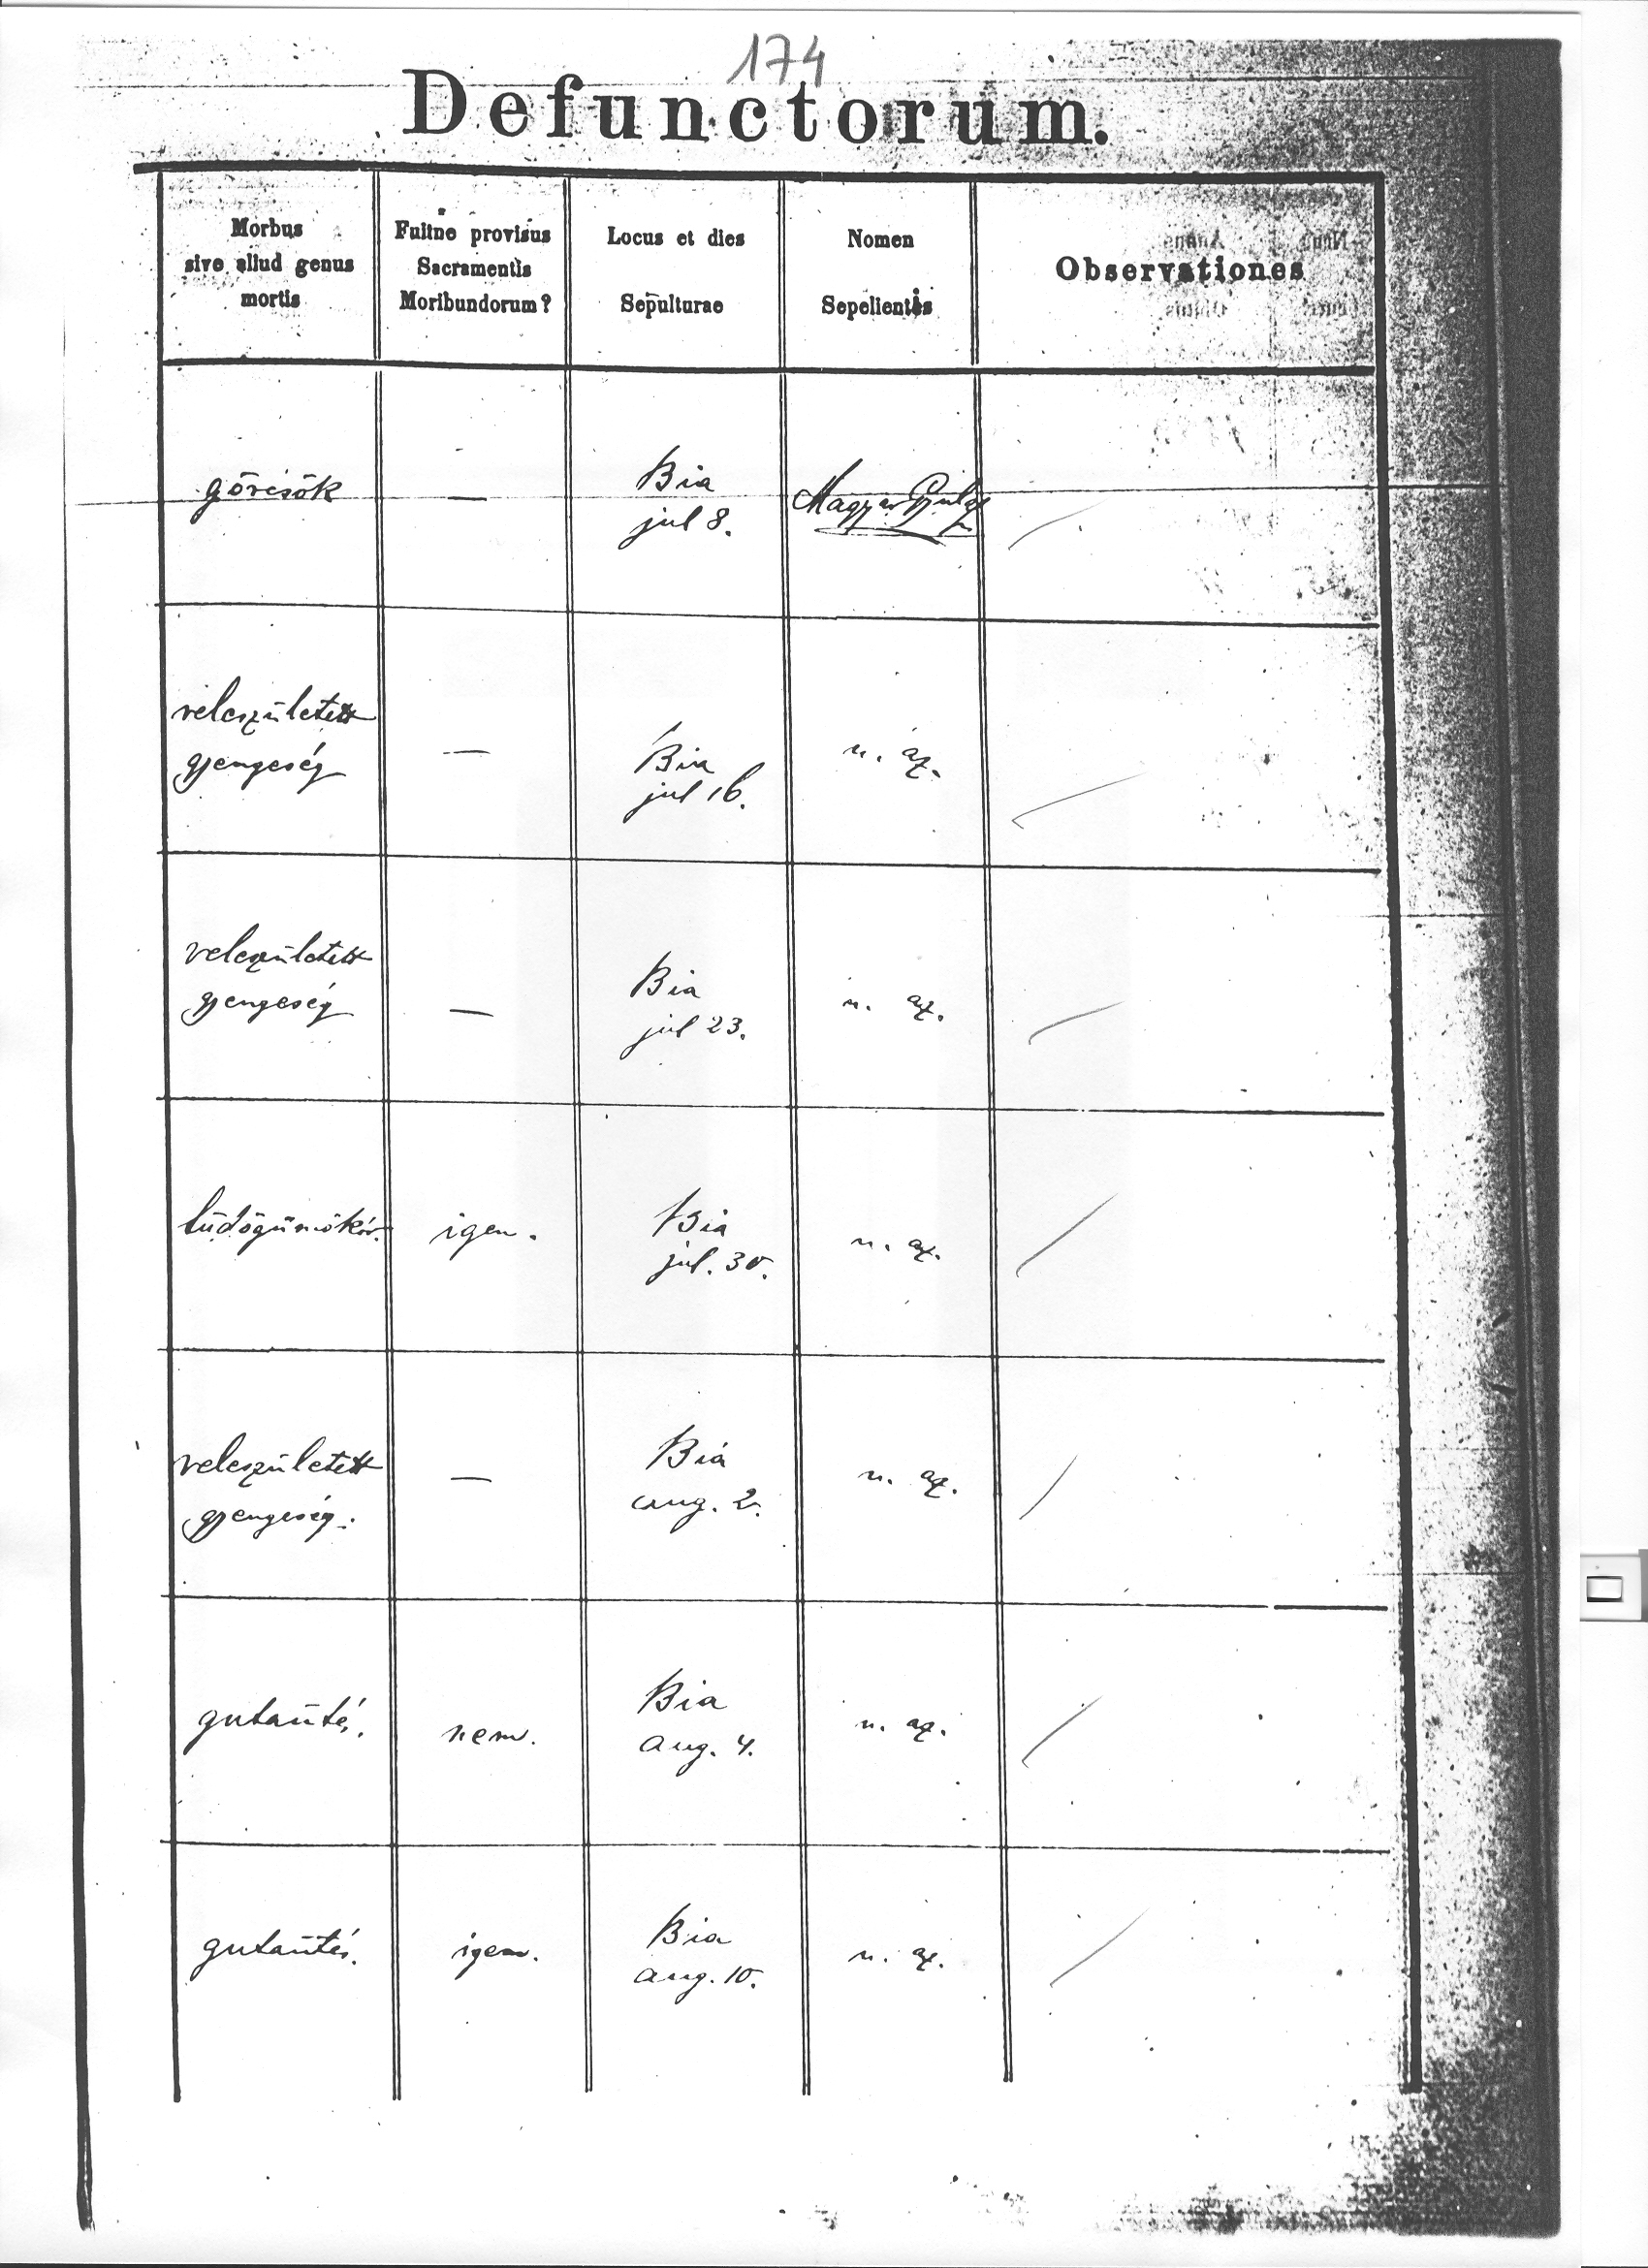 174
Defunctorum.
Morbus
sive aliud genus
mortis
Fuitne provisus
Sacramentis
Moribundorum?
Locus et dies
Sepulturae
Nomen
Sepelientis
Observationes
görcsök
—
Bia
jul 8.
Magyar Gyula
veleszületett
gyengeség
—
Bia
jul 16.
u. az.
veleszületett
gyengeség
—
Bia
jul 23.
u. az.
tüdőgümőkór.
igen.
Bia
jul. 30.
u. az.
veleszületett
gyengeség.
—
Bia
aug. 2.
u. az.
gutaütés.
nem.
Bia
aug. 4.
u. az.
gutaütés.
igen.
Bia
aug. 10.
u. az.